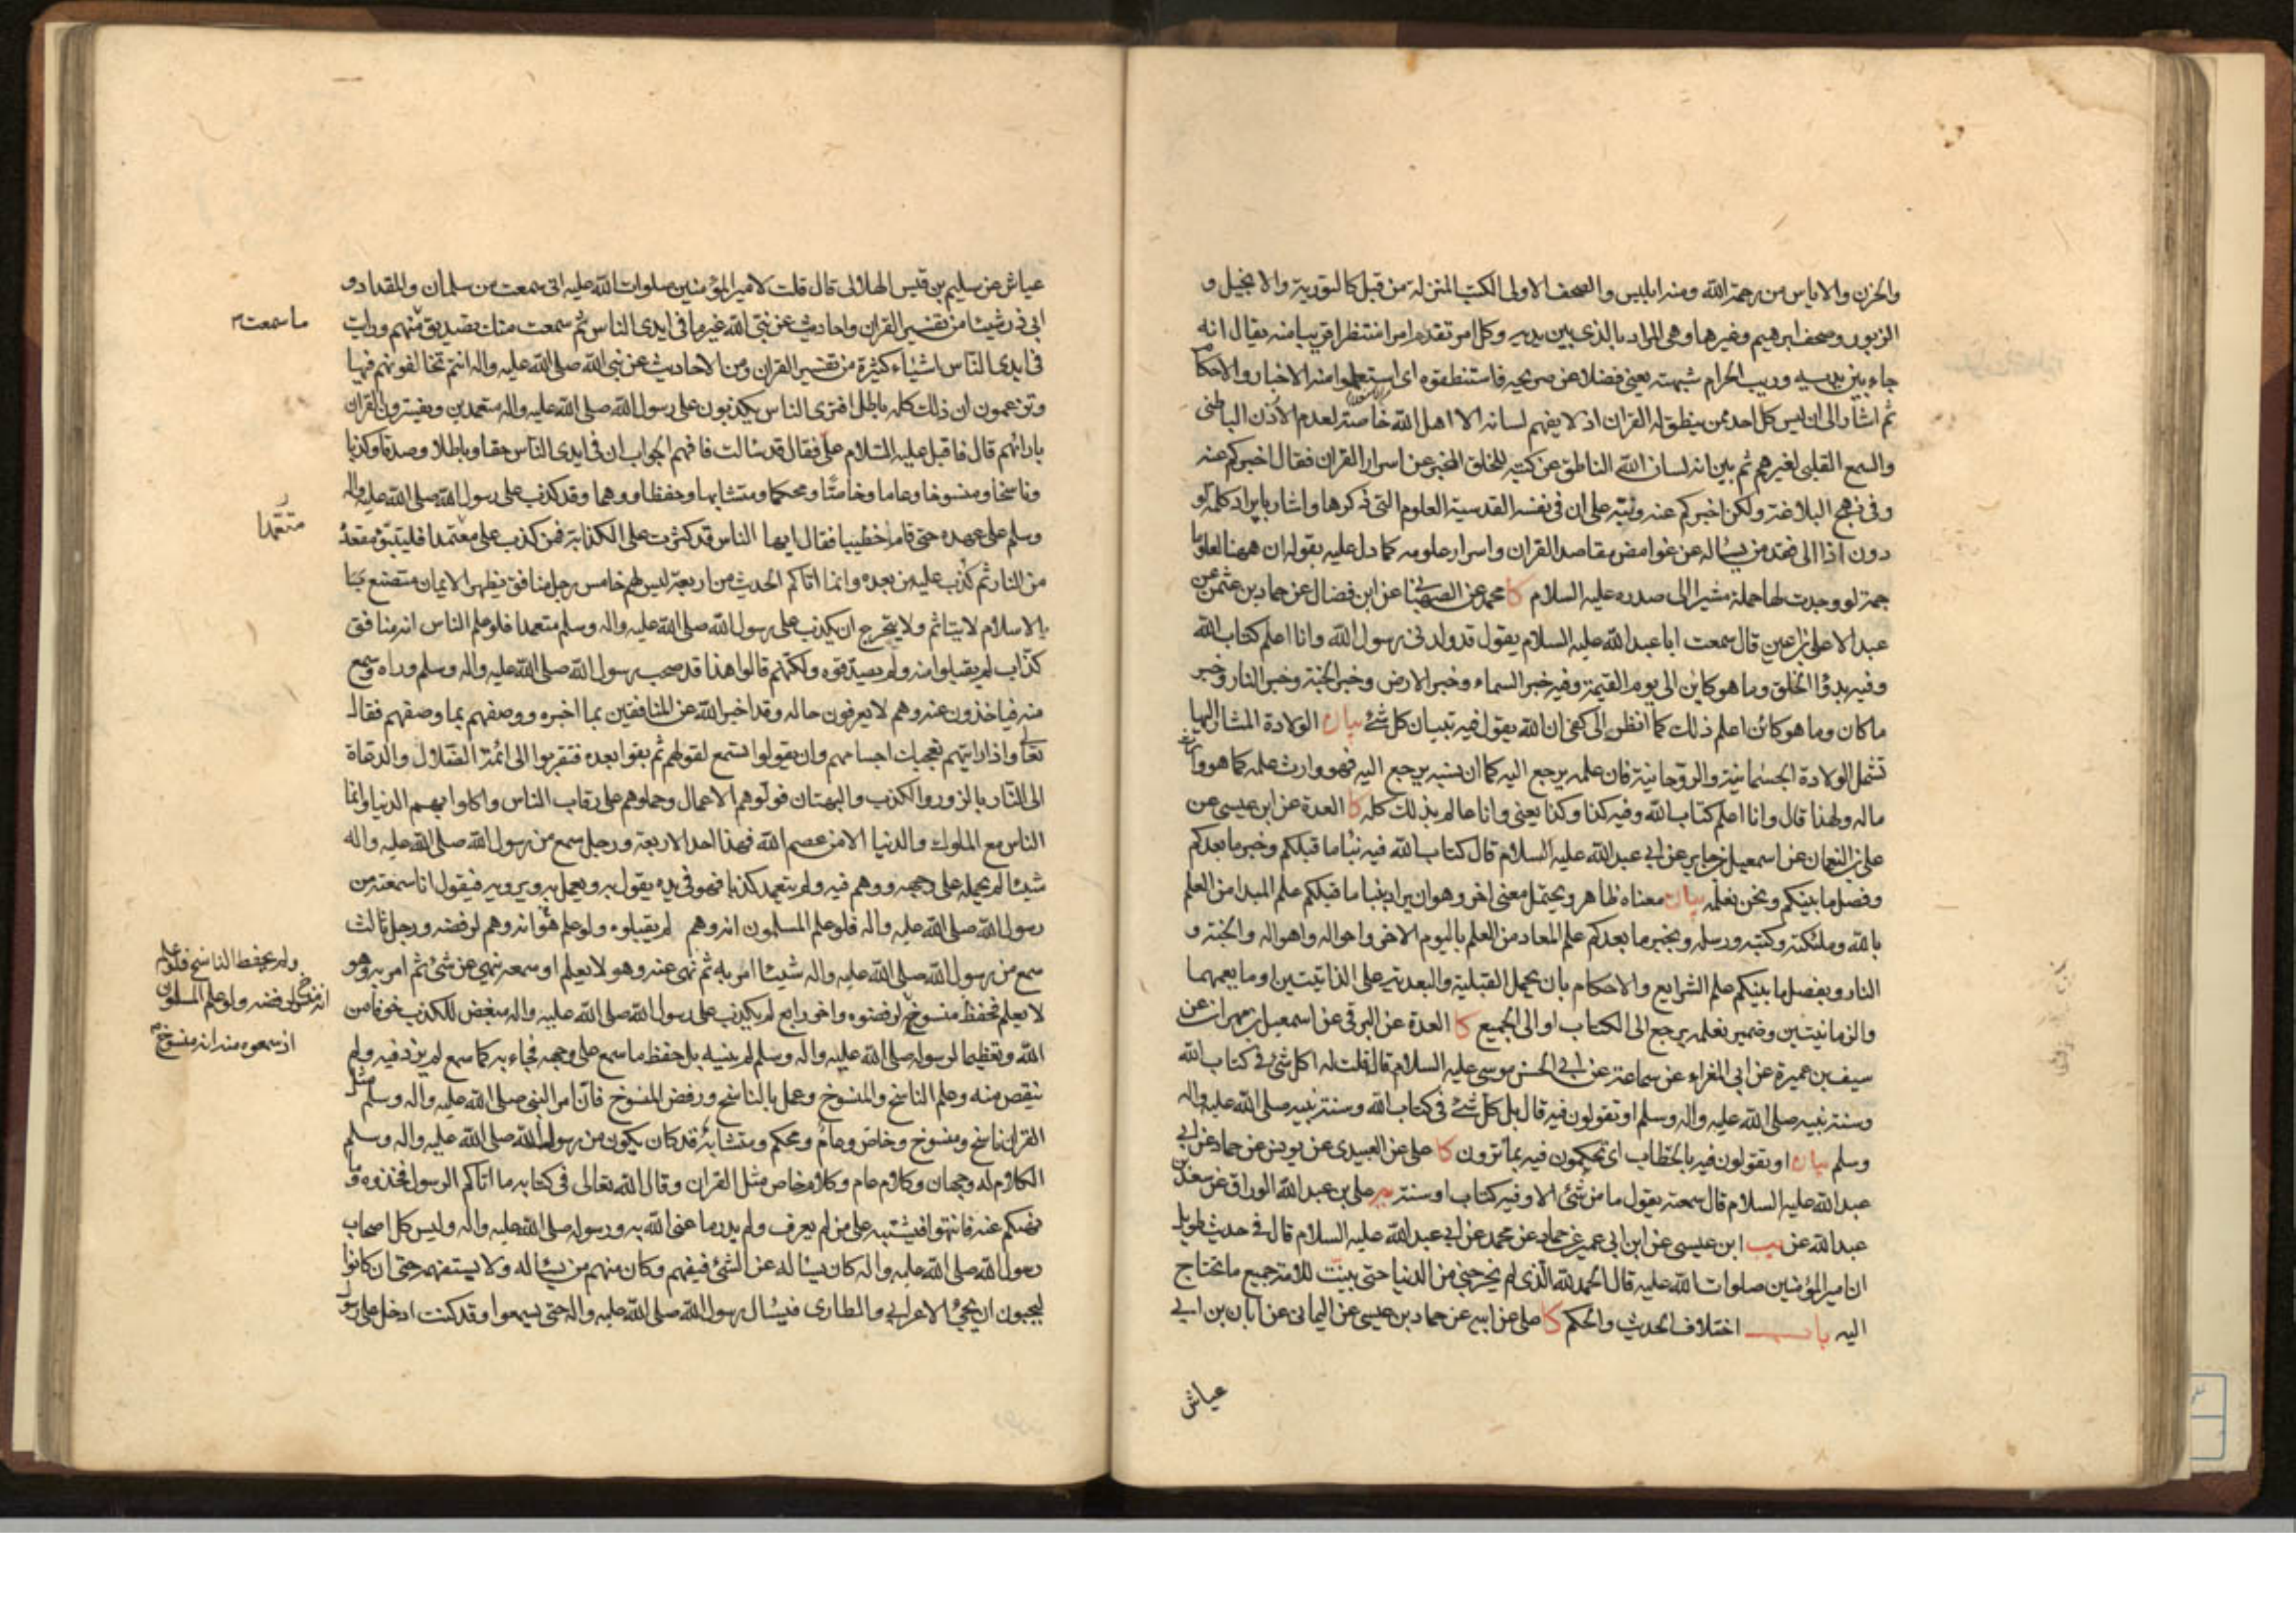 والحزن والاياس من رحمة الله ومنه ابليس والصحف الاولى الكتب المنزلة من قبل كالتورية والانجيل و
الزبور وصحف ابرهيم وغيرها وهى المراد بالذى بين يديه وكل امر تقدم امرا منتظرا قريبا منه يقال انه
جاء بين يديه وريب الحرام شبهته يعنى فضلا عن صريحه فاستنطقوه اى استعلموا منه الاخبار والاحكام
ثم اشار الى ان ليس كل احد ممن ينطق له القران اذ لا يفهم لسانه الا اهل الله خاصة لعدم الاذن الباطنى
والسمع القلبى لغيرهم ثم بين انه لسان الله الناطق عن كتبه للخلق المخبر عن اسرار القران فقال اخبركم عنه
وفى نهج البلاغة ولكن اخبركم عنه ونبه على ان فى نفسه القدسية العلوم التى ذكرها واشار بايراد كلمة لو
دون اذا الى فقد من يساله عن غوامض مقاصد القران واسرار علومه كما دل عليه بقوله ان ههنا لعلوما
جمة لو وجدت لها حملة مشيرا الى صدره عليه السلام كا محمد عن الصهبانى عن ابن فضال عن حماد بن عثمن عن
عبد الاعلى بن اعين قال سمعت ابا عبد الله عليه السلام يقول قد ولدنى رسول الله وانا اعلم كتاب الله
وفيه بدؤا الخلق وما هو كائن الى يوم القيمة وفيه خبر السماء وخبر الارض وخبر الجنة وخبر النار وخبر
ما كان وما هو كائن اعلم ذلك كما انظر الى كفى ان الله يقول فيه تبيان كل شئ بيان الولادة المشار اليها
تشمل الولادة الجسمانية والروحانية فان علمه يرجع اليه كما ان نسبه يرجع اليه فهو وارث علمه كما هو وارث
ماله ولهذا قال وانا اعلم كتاب الله وفيه كذا وكذا يعنى وانا عالم بذلك كله كا العدة عن ابن عيسى عن
على بن النعمان عن اسمعيل بن جابر عن ابى عبد الله عليه السلام قال كتاب الله فيه نبأ ما قبلكم وخبر ما بعدكم
وفصل ما بينكم ونحن نعلمه بيان معناه ظاهر ويحتمل معنى اخر وهو ان يراد بنبا ما قبلكم علم المبدا من العلم
بالله وملئكته وكتبه ورسله وبخبر ما بعدكم علم المعاد من العلم باليوم الاخر واحواله واهواله والجنة و
النار وبفصل ما بينكم علم الشرايع والاحكام بان يحمل القبلية والبعدية على الذاتيتين او ما يعمهما
والزمانيتين وضمير نعلمه يرجع الى الكتاب او الى الجميع كا العدة عن البرقى عن اسمعيل بن مهران عن
سيف بن عميرة عن ابى المغراء عن سماعة عن ابى الحسن موسى عليه السلام قال قلت له اكل شئ فى كتاب الله
وسنة نبيه صلى الله عليه واله وسلم او تقولون فيه قال بل كل شئ فى كتاب الله وسنة نبيه صلى الله عليه واله
وسلم بيان او تقولون فيه بالخطاب اى تحكمون فيه بما ترون كا على عن العبيدى عن يونس عن حماد عن ابى
عبد الله عليه السلام قال سمعته يقول ما من شئ الا وفيه كتاب او سنة على بن عبد الله الوراق عن سعد بن
عبد الله عن يب ابن عيسى عن ابن ابى عمير عن حماد عن محمد عن ابى عبد الله عليه السلام قال فى حديث طويل
ان امير المؤمنين صلوات الله عليه قال الحمد لله الذى لم يخرجنى من الدنيا حتى بينت للامة جميع ما تحتاج
اليه باب اختلاف الحديث والحكم كا على عن ابيه عن حماد بن عيسى عن اليمانى عن ابان بن ابى
عياش
عياش عن سليم بن قيس الهلالى قال قلت لامير المؤمنين صلوات الله عليه انى سمعت من سلمان والمقداد و
ابى ذر شيئا من تفسير القران واحاديث عن نبى الله غير ما فى ايدى الناس ثم سمعت منك تصديق منهم ورايت
ما سمعت
فى ايدى الناس اشياء كثيرة من تفسير القران ومن الاحاديث عن نبى الله صلى الله عليه واله انتم تخالفونهم فيها
وتزعمون ان ذلك كله باطل افترى الناس يكذبون على رسول الله صلى الله عليه واله متعمدين ويفسرون القران
بارائهم قال فاقبل عليه السلام على فقال قد سالت فافهم الجواب ان فى ايدى الناس حقا وباطلا وصدقا وكذبا
وناسخا ومنسوخا وعاما وخاصا ومحكما ومتشابها وحفظا ووهما وقد كذب على رسول الله صلى الله عليه واله
وسلم على عهده حتى قام خطيبا فقال ايها الناس قد كثرت على الكذابة فمن كذب على معتمدا فليتبوء مقعده
متعمدا
من النار ثم كذب عليه من بعده وانما اتاكم الحديث من اربعة ليس لهم خامس رجل منافق يظهر الايمان متصنع
بالاسلام لا يتاثم ولا يتحرج ان يكذب على رسول الله صلى الله عليه واله وسلم متعمدا فلو علم الناس انه منافق
كذاب لم يقبلوا منه ولم يصدقوه ولكنهم قالوا هذا قد صحب رسول الله صلى الله عليه واله وسلم وراه وسمع
منه فياخذون عنه وهم لا يعرفون حاله وقد اخبر الله عن المنافقين بما اخبره ووصفهم بما وصفهم فقال
تعالى واذا رايتهم تعجبك اجسامهم وان يقولوا تسمع لقولهم ثم بقوا بعده فتقربوا الى ائمة الضلال والدعاة
الى النار بالزور والكذب والبهتان فولوهم الاعمال وحملوهم على رقاب الناس واكلوا بهم الدنيا وانما
الناس مع الملوك والدنيا الا من عصم الله فهذا احد الاربعة ورجل سمع من رسول الله صلى الله عليه واله
شيئا لم يحمله على وجهه ووهم فيه ولم يتعمد كذبا فهو فى يده يقول به ويعمل به ويرويه فيقول انا سمعته من
رسول الله صلى الله عليه واله فلو علم المسلمون انه وهم لم يقبلوه ولو علم هو انه وهم لرفضه ورجل ثالث
سمع من رسول الله صلى الله عليه واله شيئا امر به ثم نهى عنه وهو لا يعلم او سمعه ينهى عن شئ ثم امر به وهو
لا يعلم فحفظ منسوخه لرفضوه واخر رابع لم يكذب على رسول الله صلى الله عليه واله مبغض للكذب خوفا من
ولم يحفظ الناسخ فلو علم
انه منسوخ لرفضه ولو علم المسلمون
اذ سمعوه منه انه منسوخ
الله وتعظيما لرسوله صلى الله عليه واله وسلم لم ينسه بل حفظ ما سمع على وجهه فجاء به كما سمع لم يزد فيه ولم
ينقص منه وعلم الناسخ والمنسوخ وعمل بالناسخ ورفض المنسوخ فان امر النبى صلى الله عليه واله وسلم مثل
القران ناسخ ومنسوخ وخاص وعام ومحكم ومتشابه قد كان يكون من رسول الله صلى الله عليه واله وسلم
الكلام له وجهان وكلام عام وكلام خاص مثل القران وقال الله تعالى فى كتابه ما اتاكم الرسول فخذوه وما
نهيكم عنه فانتهوا فيشتبه على من لم يعرف ولم يدر ما عنى الله به ورسوله صلى الله عليه واله وليس كل اصحاب
رسول الله صلى الله عليه واله كان يساله عن الشئ فيفهم وكان منهم من يساله ولا يستفهمه حتى ان كانوا
ليحبون ان يجئ الاعرابى والطارى فيسال رسول الله صلى الله عليه واله حتى يسمعوا وقد كنت ادخل على رسول